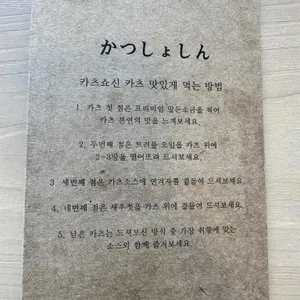 かつしょしん
카츠쇼신 카츠 맛있게 먹는 방법
1. 카츠 첫 점은 프리미엄 말돈소금을 찍어
카츠 본연의 맛을 느껴보세요.
2. 두번째 점은 트러플 오일을 카츠 위에
2~3방울 떨어뜨려 드셔보세요.
3. 세번째 점은 카츠소스에 연겨자를 곁들여 드셔보세요.
4. 네번째 점은 새우젓을 카츠 위에 곁들여 드셔보세요.
5. 남은 카츠는 드셔보신 방식 중 가장 취향에 맞는
소스와 함께 즐겨보세요.